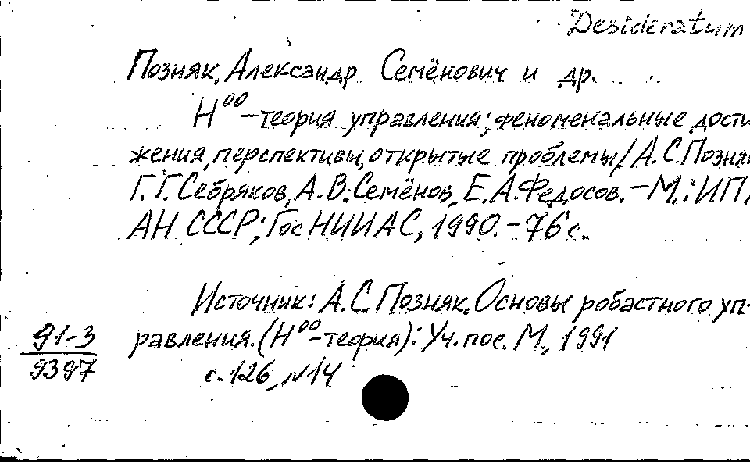 Desideratum
Позняк, Александр Семёнович и др.
H⁰⁰-теория управления: феноменальные дости
жения, перспективы, открытые проблемы / А.С. Позня
Г.Г. Себряков, А.В. Семёнов, Е.А. Федосов. – М.: ИП
АН СССР; Гос НИИАС, 1990. – 76 с.
Источник: А.С. Позняк. Основы робастного уп-
равления. (H⁰⁰-теория): Уч. пос. М., 1991
с. 126, N14
91-3
9397